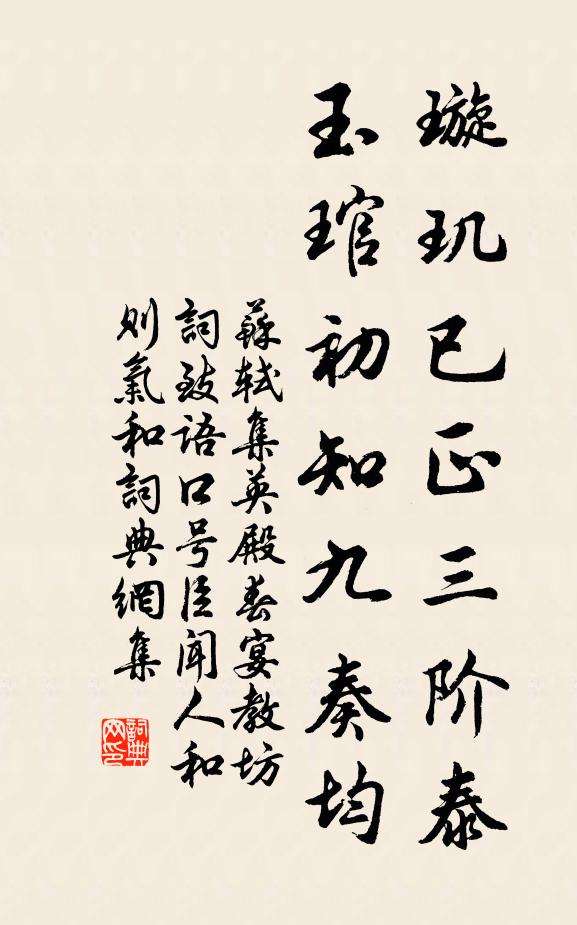 璇玑已正三阶泰
玉琯初知九奏均
蘇軾集英殿春宴教坊
詞致语口号臣闻人和
则氣和詞典網集
詞典网印